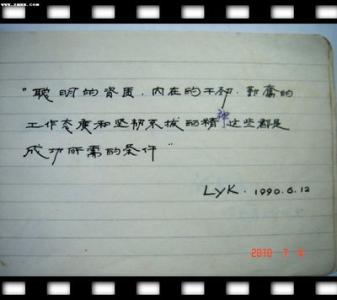 www.zmnn.com
"聪明的资质、内在的干劲、勤奋的
工作态度和坚韧不拔的精神这些都是
成功所需的条件"
LYK. 1990.6.12
2010 7 4